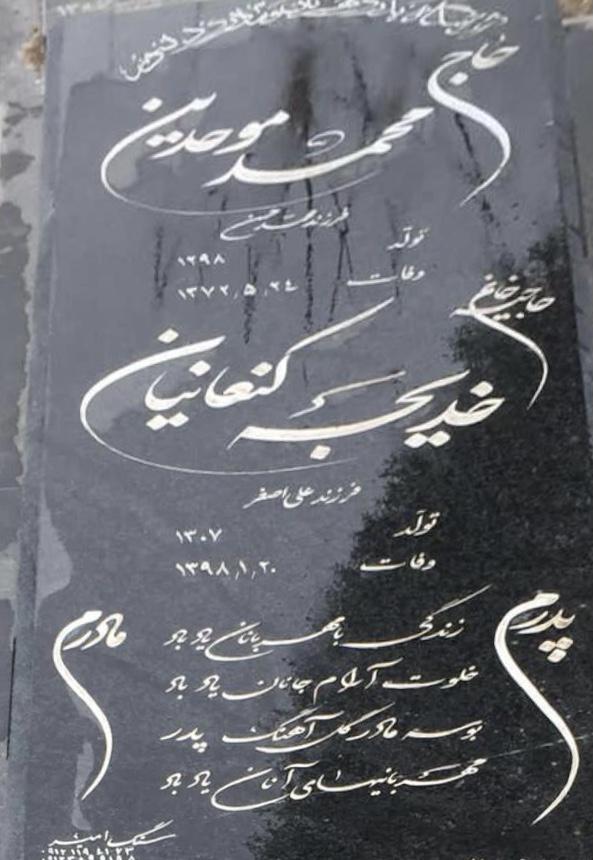 حاج
محمد موحدین
فرزند محمدحسن
تولد ۱۲۹۸
وفات ۱۳۷۲٫۵٫۲۴
حاجیه خانم
خدیجه کنعانیان
فرزند علی اصغر
تولد ۱۳۰۷
وفات ۱۳۹۸٫۱٫۲۰
پدرم
مادرم
زندگی با مهربانان یاد باد
خلوت آرام جانان یاد باد
بوسه مادر گل آهنگ پدر
مهربانیهای آنان یاد باد